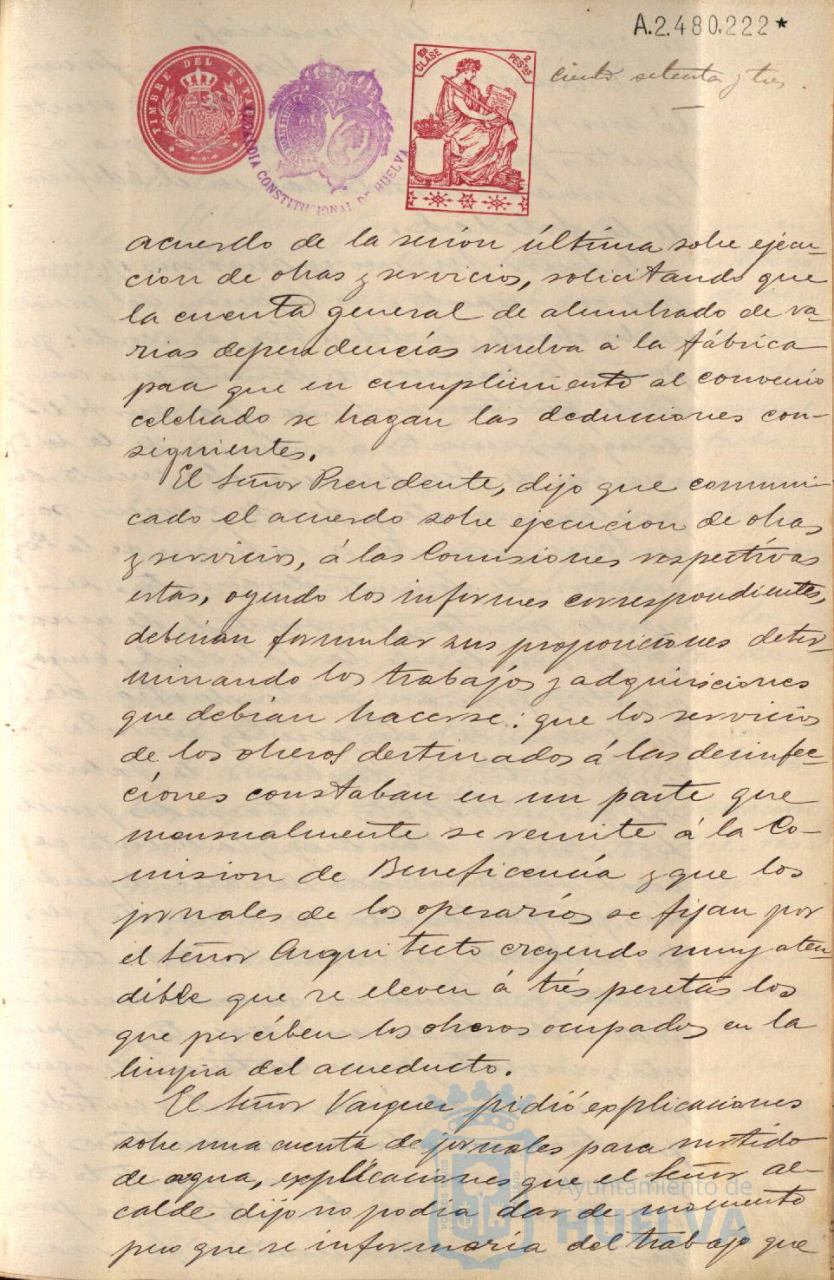 A.2.480.222*
TIMBRE DEL ESTADO
ALCALDIA CONSTITUCIONAL DE HUELVA
10ª CLASE 2 PESETAS
ciento setenta y tres
acuerdo de la sesión última sobre ejecu-
cion de obras y servicios, solicitando que
la cuenta general de alumbrado de va-
rias dependencias vuelva á la fábrica
paa que en cumplimiento al convenio
celebrado se hagan las deducciones con-
siguientes.
El Señor Presidente, dijo que comuni-
cado el acuerdo sobre ejecucion de obras
y servicios, á las Comisiones respectivas
estas, oyendo los informes correspondientes,
debian formular sus proposiciones deter-
minando los trabajos y adquisiciones
que debian hacerse: que los servicios
de los obreros destinados á las desinfec-
ciones constaban en un parte que
mensualmente se remite á la Co-
mision de Beneficencia y que los
jornales de los operarios se fijan por
el Señor Arquitecto creyendo muy aten
dible que se eleven á trés pesetas los
que perciben los obreros ocupados en la
limpia del acueducto.
El Señor Vazquez pidió explicaciones
sobre una cuenta de jornales para surtido
de agua, explicaciones que el Señor al-
calde dijo no podia dar de momento
pero que se informaria del trabajo que
Ayuntamiento de
HUELVA